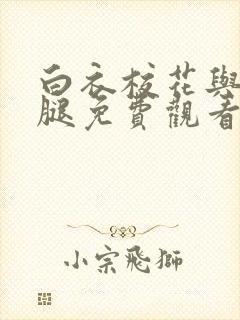 白衣校花與
腿免費觀看
小宗飛獅